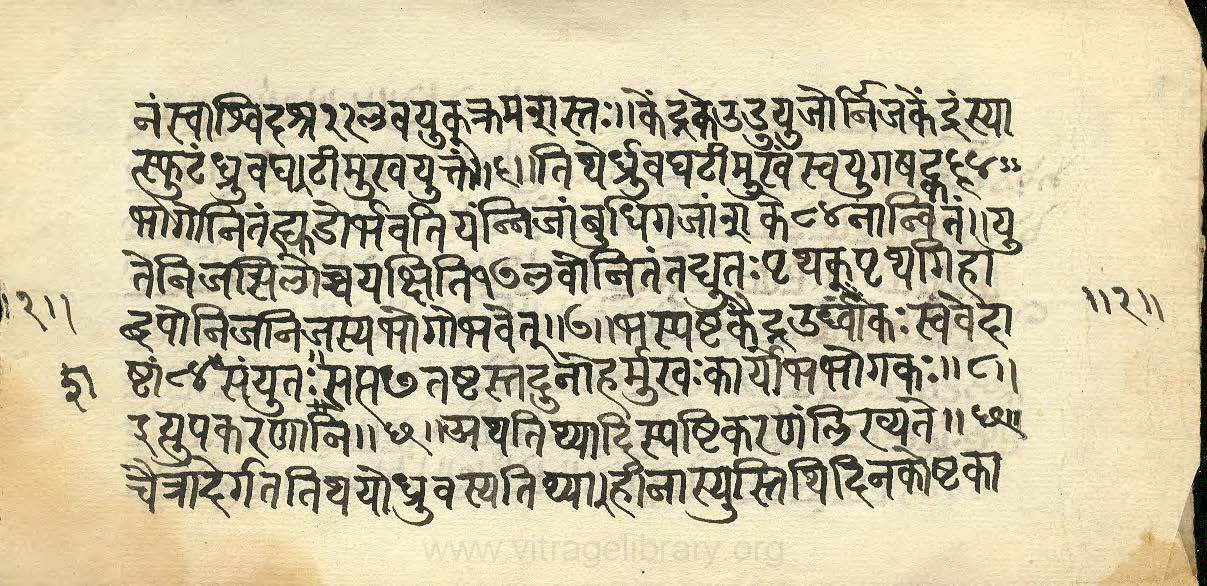 नंस्वाश्विदश्र२२लवयुक्क्रमशस्तः॥केंद्रकेउडुयुजोर्निजकेंद्रंस्या
त्स्फुटंध्रुवघटीमुखयुक्तं॥६॥तिथेर्ध्रुवघटीमुखंस्वयुगषट्क६४
भोगोनितंह्युडोर्भवतियंन्निजांबुधिगजांशके८४नान्वितं॥यु
तेनिजसिलोच्चयक्षिति१७लवोनितंतद्युतः पृथक्पृथगिहा
द्वयोनिजनिजस्यभोगोभवेत्॥७॥भस्पष्टकेंद्रउर्ध्वांकः स्ववेदा
ष्टां८४संयुतः सप्त७तष्टस्तदुनोहर्मुखः कार्योभभोगकः॥८॥
इत्युपकरणानि॥छ॥अथतिथ्यादिस्पष्टिकरणंलिख्यते॥छ॥
चैत्रादेर्गततिथयोध्रुवस्यतिथ्याहीनास्युस्तिथिदिनकोष्टका
॥२॥
॥२॥
www.vitragelibrary.org